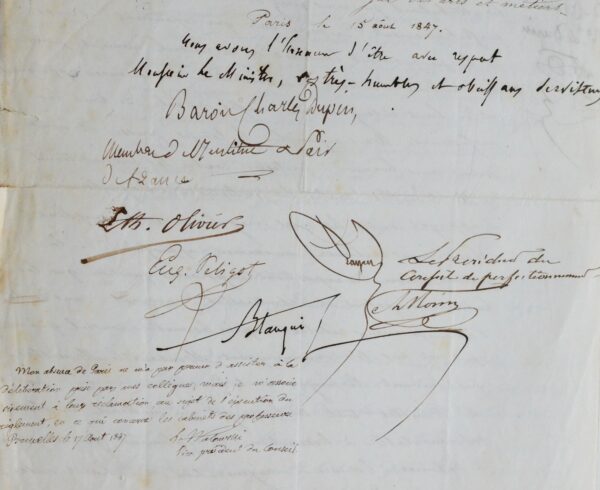 par des arts et métiers.
Paris le 15 août 1847.
Nous avons l'honneur d'être avec respect
Monsieur le Ministre, très-humbles et obéissans serviteurs
Baron Charles Dupin,
Membre de l'Institut Pair
de France
Th. Olivier
Eug. Peligot
Payen
Le Président du
Conseil de perfectionnement
A Morin
Blanqui
Mon absence de Paris ne m'a pas permis d'assister à la
délibération prise par mes collègues, mais je m'associe
vivement à leur réclamation au sujet de l'exécution du
règlement, en ce qui concerne les cabinets des professeurs
Bruxelles le 17 août 1847
Vice président du Conseil